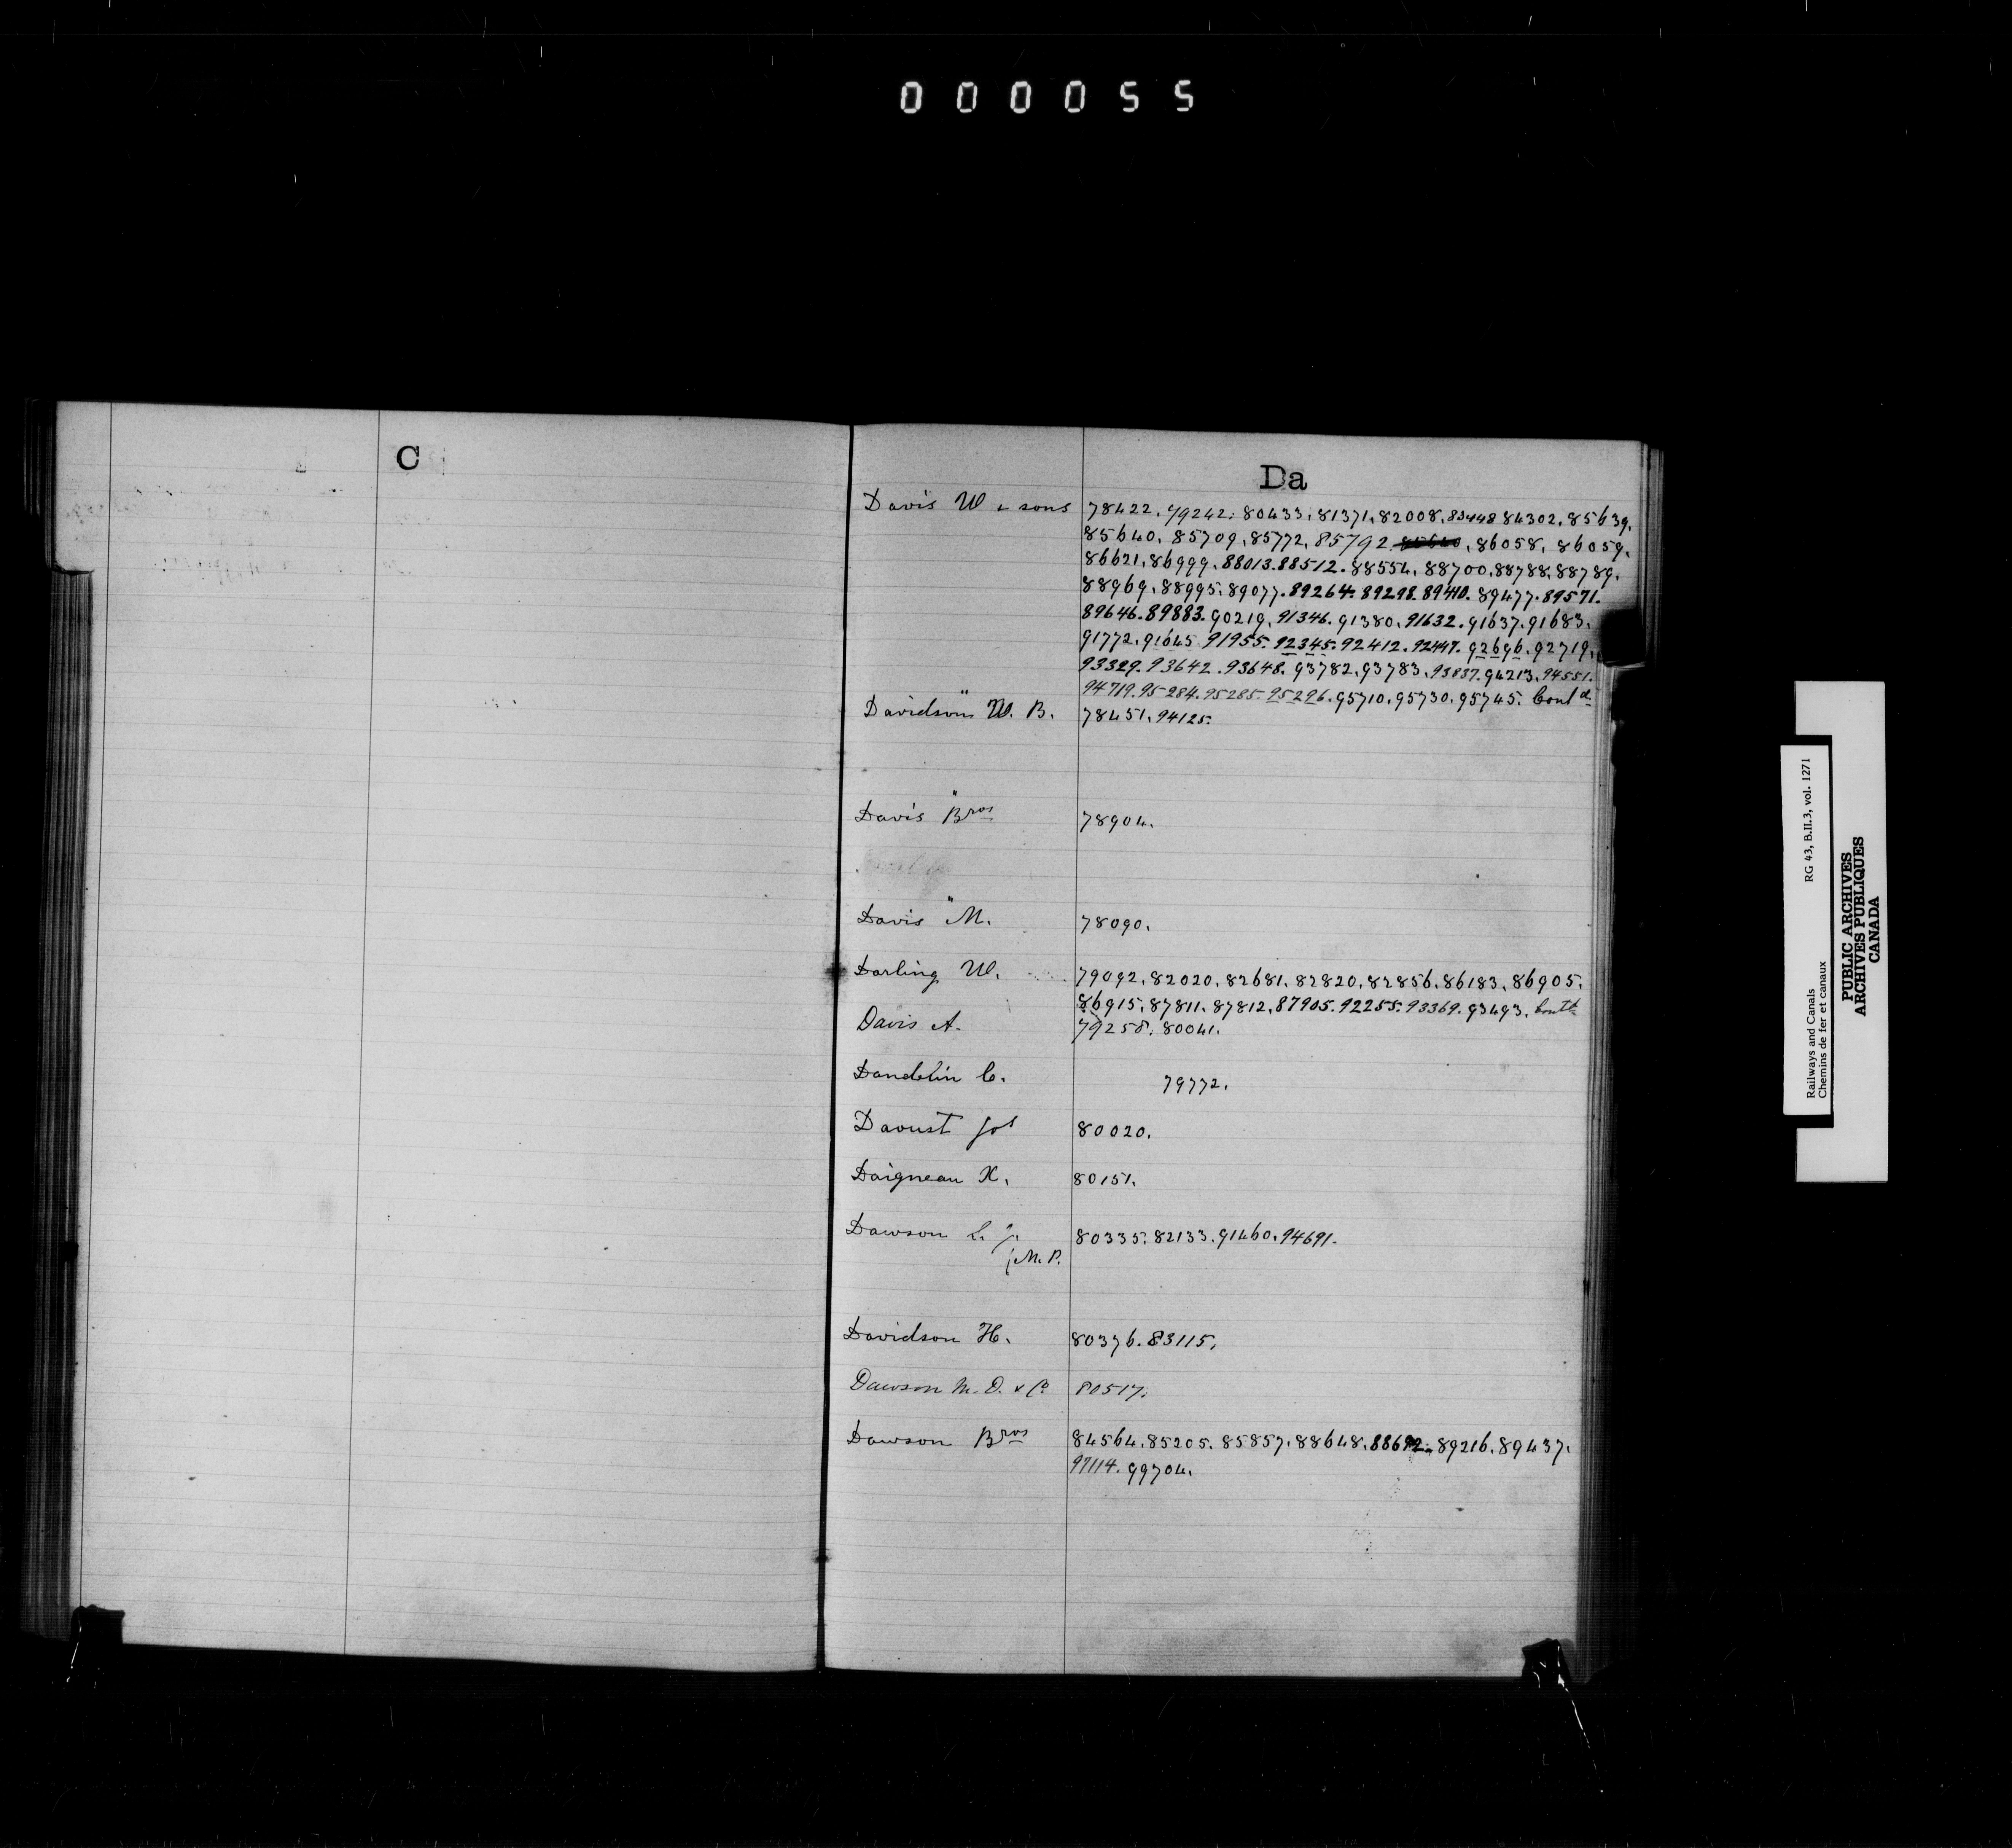 000055
C
Da
Davis W & sons 78422. 79242. 80433. 81371. 82008. 83448 84302. 85639.
85640. 85709. 85772. 85792. 85640. 86058. 86059.
86621. 86999. 88013. 88512. 88554. 88700. 88788. 88789.
88969. 88995. 89077. 89264. 89298. 89410. 89477. 89571.
89646. 89883. 90219. 91346. 91380. 91632. 91637. 91683.
91772. 91645. 91955. 92345. 92412. 92447. 92696. 92719.
93329. 93642. 93648. 93782. 93783. 93837. 94213. 94551.
94719. 95284. 95285. 95296. 95710. 95730. 95745. Contd
Davidson W. B. 78451. 94125.
Davis Bros 78904.
Davis M. 78090.
Darling W. 79092. 82020. 82681. 82820. 82856. 86183. 86905.
86915. 87811. 87812. 87905. 92255. 93369. 93493. Contd
Davis A. 79258. 80041.
Dandelin C. 79772.
Davust Jos 80020.
Daigneau X. 80151.
Dawson 80335. 82133. 91460. 94691.
M. P.
Davidson H. 80376. 83115.
Dawson M. D. & Co 80517.
Dawson Bros 84564. 85205. 85857. 88648. 88692. 89216. 89437.
97114. 99704.
Railways and Canals RG 43, B.II.3, vol. 1271
Chemins de fer et canaux
PUBLIC ARCHIVES
ARCHIVES PUBLIQUES
CANADA